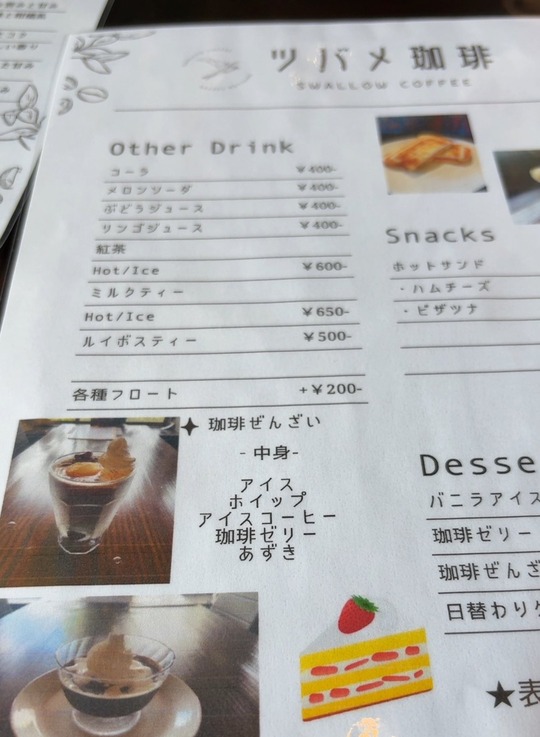 ツバメ珈琲
SWALLOW COFFEE
Other Drink
コーラ ¥400-
メロンソーダ ¥400-
ぶどうジュース ¥400-
リンゴジュース ¥400-
紅茶
Hot/Ice ¥600-
ミルクティー
Hot/Ice ¥650-
ルイボスティー ¥500-
各種フロート +¥200-
珈琲ぜんざい
-中身-
アイス
ホイップ
アイスコーヒー
珈琲ゼリー
あずき
Snacks
ホットサンド
・ハムチーズ
・ピザツナ
Desse
バニラアイス
珈琲ゼリー
珈琲ぜんざ
日替わりケ
★表